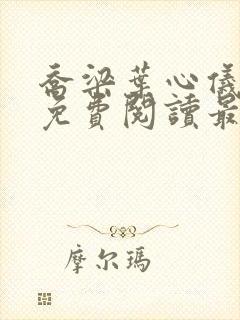 喬梁葉心儀
免費閱讀最
摩尔瑪